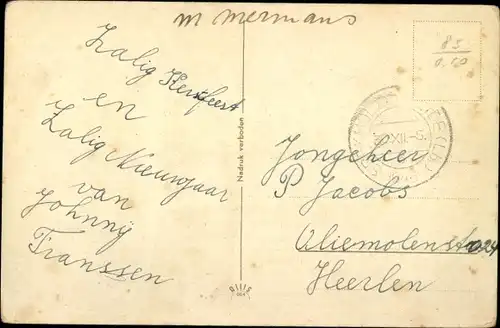 M Mermans
Zalig Kerstfeest
en
Zalig Nieuwjaar
van
Johnny
Franssen
Nadruk verboden
85
0.50
XII.-5
Jongeheer
P Jacobs
Oliemolenstr 24
Heerlen